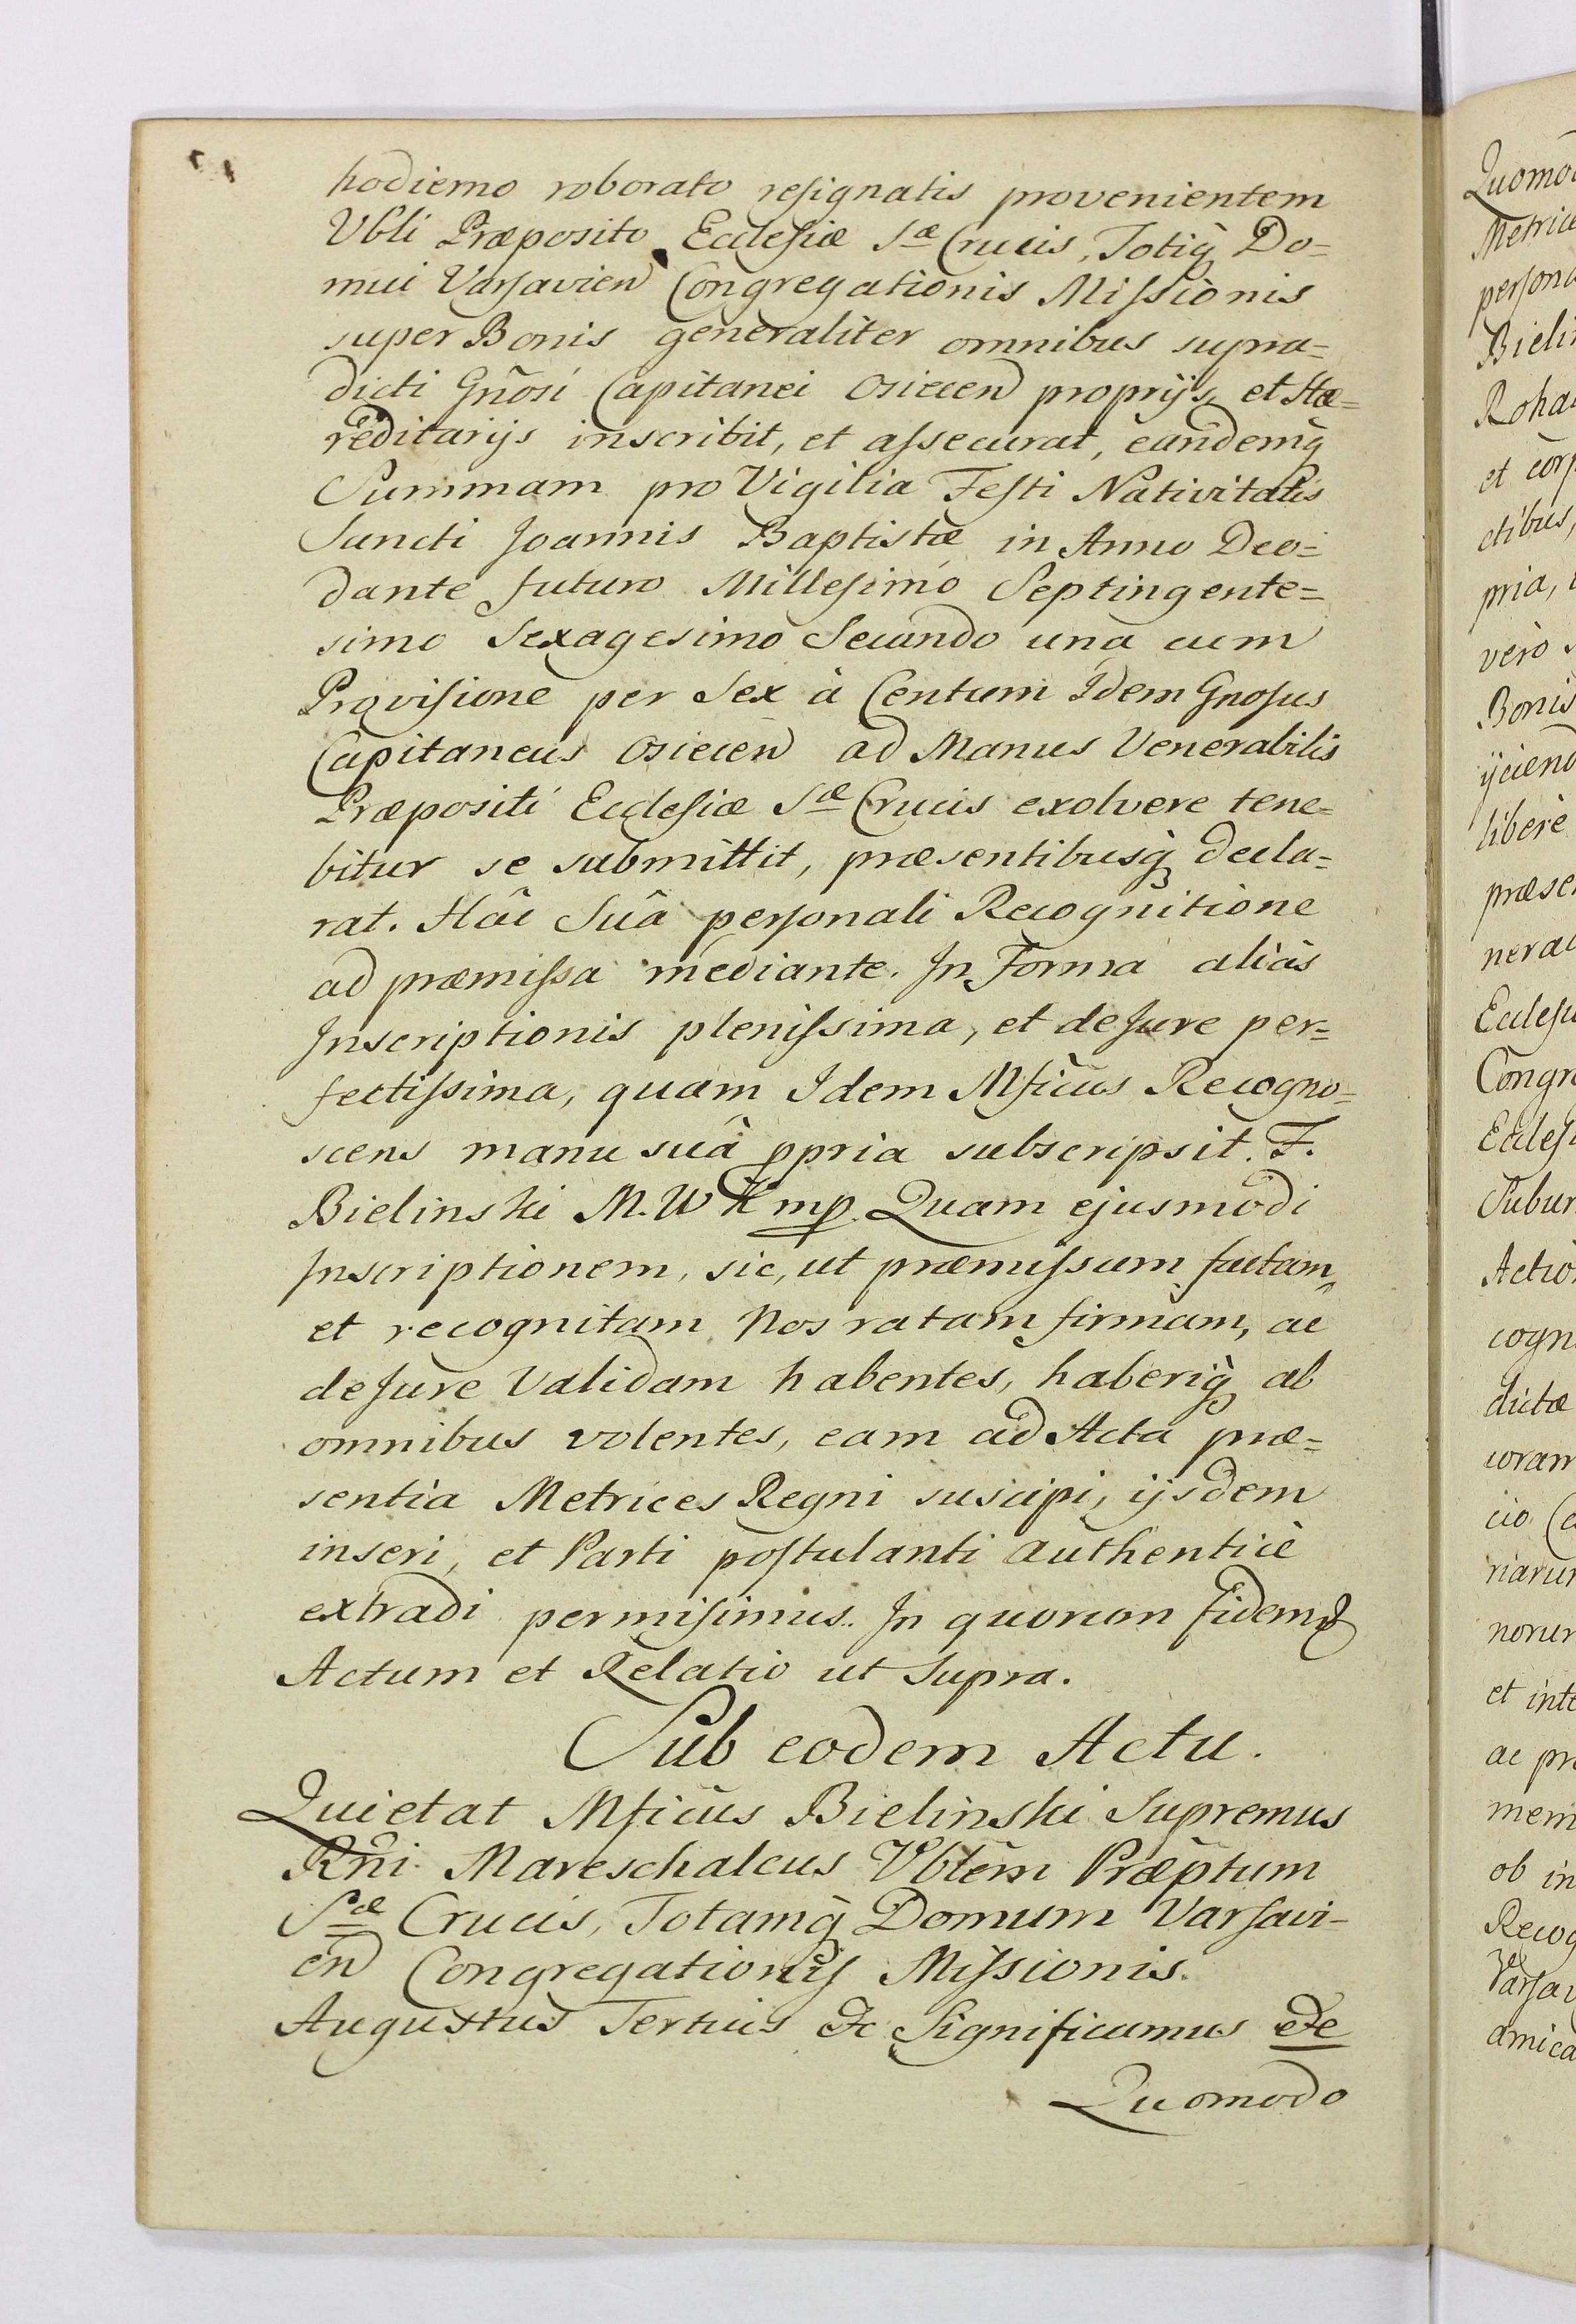 hodierno roborato resignatis provenientem
Vbli Præposito Ecclesiæ Sæ Crucis, Totiq̀ Do=
mui Varsavien Congregationis Missionis
super Bonis generaliter omnibus supra=
dicti Gñosi Capitanei Osiecen proprijs, et Hæ=
reditarijs inscribit, et assecurat, eandemq̀
Summam pro Vigilia Festi Nativitatis
Sancti Joannis Baptistæ in Anno Deo=
dante futuro Millesimo Septingente=
simo Sexagesimo Secundo una cum
Provisione per Sex à Centum Idem Gnosus
Capitaneus Osiecen ad Manus Venerabilis
Præpositi Ecclesiæ Sæ Crucis exolvere tene=
bitur se submittit, præsentibusq̀ decla=
rat. Hâc Suâ personali Recognitione
ad præmissa mediante. In Forma aliàs
Inscriptionis plenissima, et de Jure per=
fectissima, quam Idem Mficus Recogno=
scens manu suâ ppria subscripsit. F.
Bielinski M. W K mp. Quam ejusmodi
Inscriptionem, sic, ut præmissum factam,
et recognitam Nos ratam firmam, ac
de Jure Validam habentes, haberiq̀ ab
omnibus volentes, eam ad Acta præ=
sentia Metrices Regni suscipi, ijsdem
inseri, et Parti postulanti authenticè
extradi permisimus. In quorum fidem &
Actum et Relatio ut Supra.
Sub eodem Actu.
Quietat Mficus Bielinski Supremus
Rñi Mareschalcus Vblem Præptum
Sæ Crucis, Totamq̀ Domum Varsavi-
en Congregationis Missionis.
Augustus Tertius &c Significamus &c
Quomodo